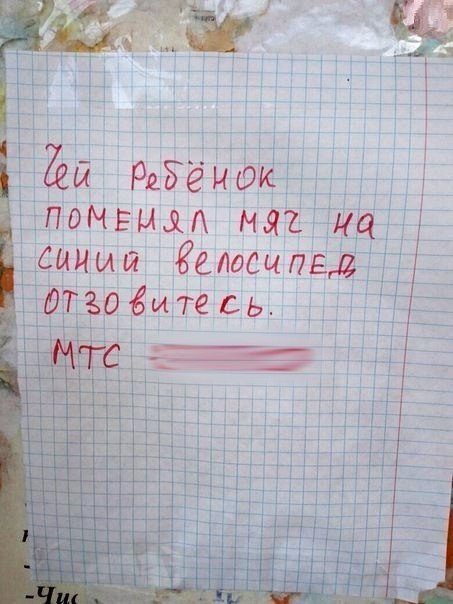 Чей ребёнок
поменял мяч на
синий велосипед
отзовитесь.
МТС
-Чис